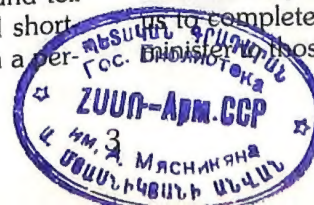 short- us to complete
a per- minister
ՊԵՏԱԿԱՆ ԳՐԱԴԱՐԱՆ
Гос. Библиотека
ՀՍՍՌ=Арм.ССР
им. А. Мясникяна
Ա. ՄՅԱՍՆԻԿՅԱՆԻ ԱՆՎԱՆ
3